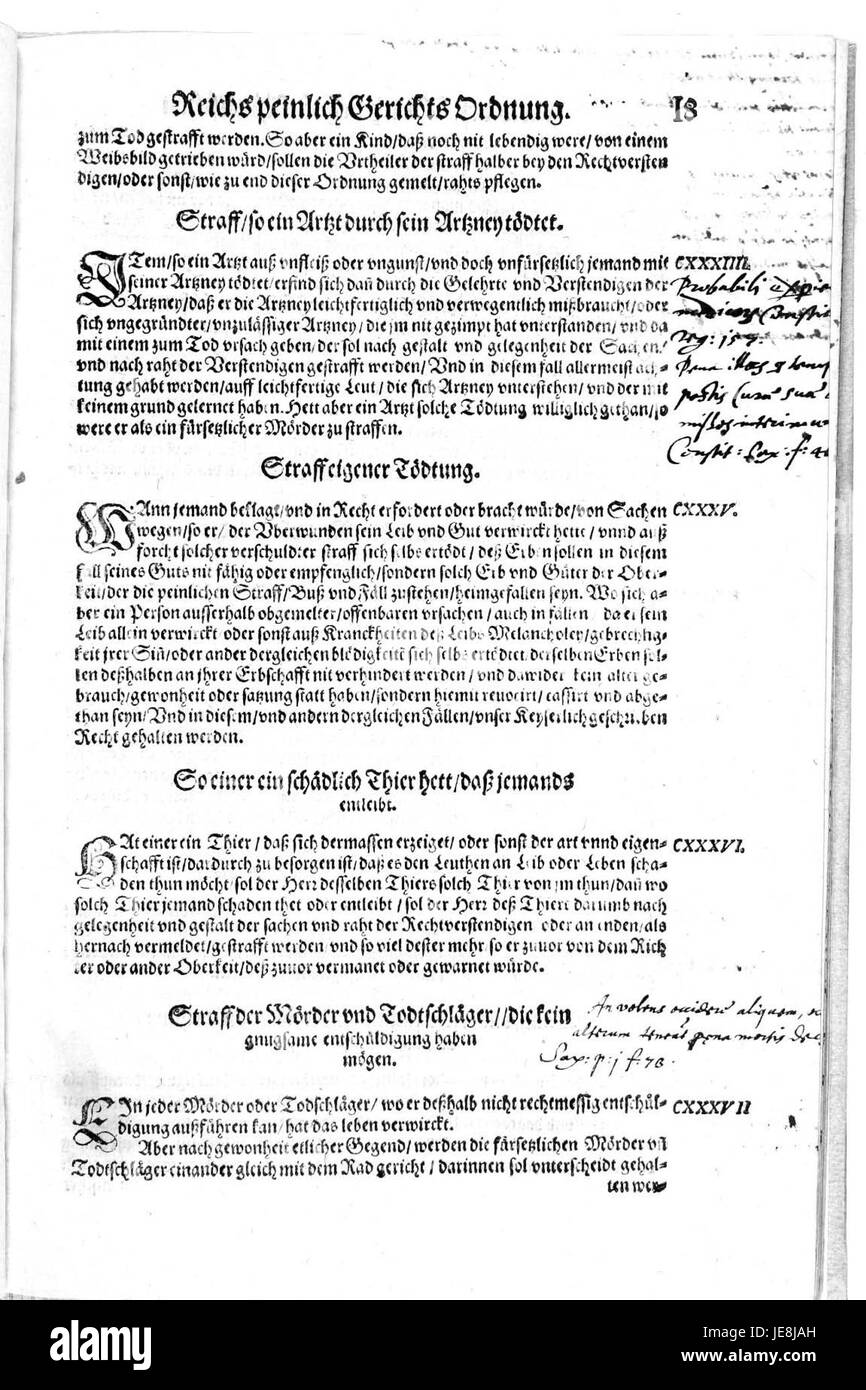 Reichs peinlich Gerichts Ordnung.
18
zum Tod gestrafft werden. So aber ein Kind/daß noch nit lebendig were/von einem
Weibsbild getrieben würd/sollen die Vrtheiler der straff halber bey den Rechtversten
digen/oder sonst/wie zu end dieser Ordnung gemelt/rahts pflegen.
Straff/so ein Artzt durch sein Artzney tödtet.
ITem/so ein Artzt auß vnfleiß oder vngunst/vnd doch vnfürsetzlich jemand mit
seiner Artzney tödtet/erfind sich dañ durch die Gelehrte vnd Verstendigen der
Artzney/daß er die Artzney leichtfertiglich vnd verwegentlich mißbraucht/oder
sich vngegründter/vnzulässiger Artzney/die jm nit gezimpt hat vnterstanden/vnd da
mit einem zum Tod vrsach geben/der sol nach gestalt vnd gelegenheit der Sachen/
vnd nach raht der Verstendigen gestrafft werden/Vnd in diesem fall allermeist ach-
tung gehabt werden/auff leichtfertige Leut/die sich Artzney vnterstehen/vnd der mit
keinem grund gelernet haben. Hett aber ein Artzt solche Tödtung williglich gethan/so
were er als ein fürsetzlicher Mörder zu straffen.
CXXXIIII.
Probabili
Constit
Pena
Constit: Sax: f:
Straff eigener Tödtung.
WAnn jemand beklagt/vnd in Recht erfordert oder bracht würde/von Sachen
wegen/so er/der Vberwunden sein Leib vnd Gut verwirckt hette/vnnd auß
forcht solcher verschuldter straff sich selbs ertödt/deß Erben sollen in diesem
fall seines Guts nit fähig oder empfenglich/sondern solch Erb vnd Güter der Ober-
keit/der die peinlichen Straff/Buß vnd Fäll zustehen/heimgefallen seyn. Wo sich a-
ber ein Person ausserhalb obgemelter/offenbaren vrsachen/auch in fällen da er sein
Leib allein verwirckt oder sonst auß Kranckheiten deß Leibs Melancholey/gebrechlig-
keit jrer Siñ/oder ander dergleichen blödigkeitē sich selbs ertödtet derselben Erben sol-
len deßhalben an jhrer Erbschafft nit verhindert werden/vnd dawider kein alter ge-
brauch/gewonheit oder satzung statt haben/sondern hiemit revocirt/cassirt vnd abge-
than seyn/Vnd in diesem/vnd andern dergleichen Fällen/vnser Keyserlich geschrieben
Recht gehalten werden.
CXXXV.
So einer ein schädlich Thier hett/daß jemands
entleibt.
HAt einer ein Thier/daß sich dermassen erzeiget/oder sonst der art vnnd eigen-
schafft ist/dardurch zu besorgen ist/daß es den Leuthen an Leib oder Leben scha-
den thun möcht/sol der Herr desselben Thiers solch Thier von jm thun/dañ wo
solch Thier jemand schaden thet oder entleibt/sol der Herr deß Thiers darumb nach
gelegenheit vnd gestalt der sachen vnd raht der Rechtverstendigen oder an enden/als
hernach vermeldet/gestrafft werden vnd so viel dester mehr so er zuuor von dem Rich
ter oder ander Oberkeit/deß zuuor vermanet oder gewarnet würde.
CXXXVI.
Straff der Mörder vnd Todtschläger//die kein
gnugsame entschüldigung haben
mögen.
An volens occidere aliquem,
alterum pena mortis
Sax: p: j f: 78.
EIn jeder Mörder oder Todschläger/wo er deßhalb nicht rechtmessig entschül-
digung außführen kan/hat das leben verwirckt.
Aber nach gewonheit etlicher Gegend/werden die fürsetzlichen Mörder vñ
Todtschläger einander gleich mit dem Rad gericht/darinnen sol vnterscheidt gehal-
ten wer-
CXXXVII
alamy
Image ID: JE8JAH
www.alamy.com